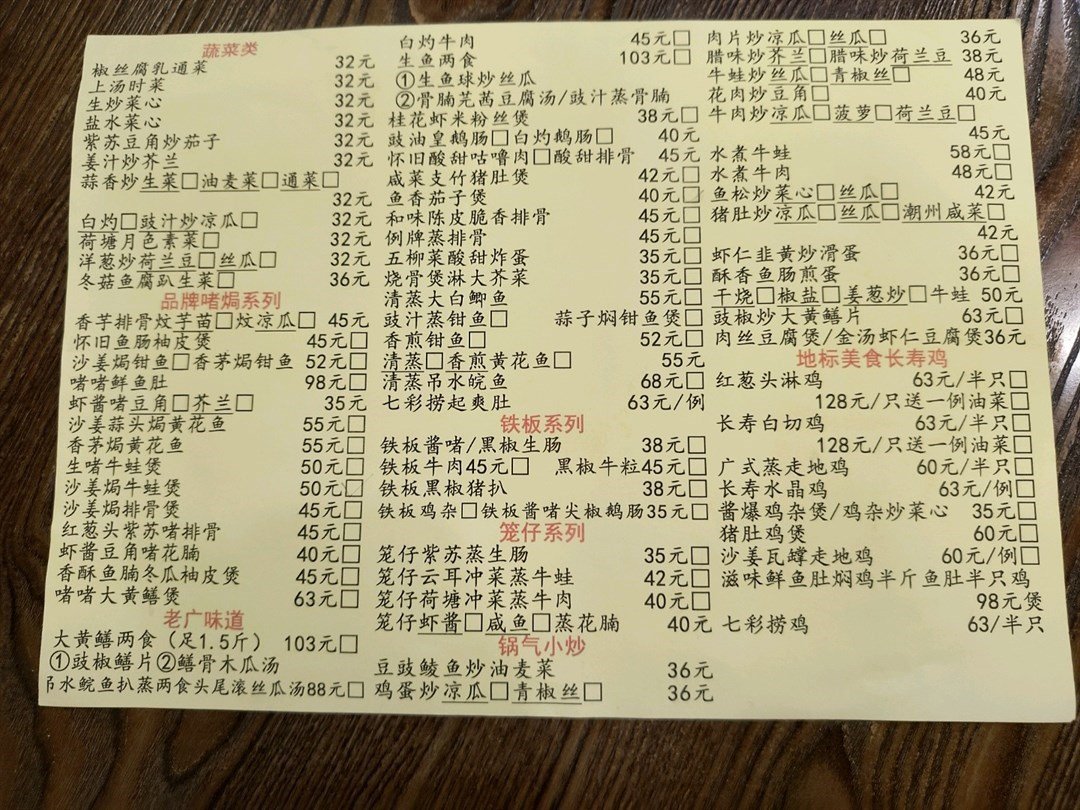 蔬菜类
椒丝腐乳通菜 32元
上汤时菜 32元
生炒菜心 32元
盐水菜心 32元
紫苏豆角炒茄子 32元
姜汁炒芥兰 32元
蒜香炒生菜□油麦菜□通菜□
32元
白灼□豉汁炒凉瓜□ 32元
荷塘月色素菜□ 32元
洋葱炒荷兰豆□丝瓜□ 32元
冬菇鱼腐趴生菜□ 36元
品牌啫焗系列
香芋排骨炆芋苗□炆凉瓜□ 45元
怀旧鱼肠柚皮煲 45元□
沙姜焗钳鱼□香茅焗钳鱼 52元□
啫啫鲜鱼肚 98元□
虾酱啫豆角□芥兰□ 35元
沙姜蒜头焗黄花鱼 55元□
香茅焗黄花鱼 55元□
生啫牛蛙煲 50元□
沙姜焗牛蛙煲 50元□
沙姜焗排骨煲 45元□
红葱头紫苏啫排骨 45元□
虾酱豆角啫花腩 40元□
香酥鱼腩冬瓜柚皮煲 45元□
啫啫大黄鳝煲 63元□
老广味道
大黄鳝两食（足1.5斤） 103元□
①豉椒鳝片②鳝骨木瓜汤
吊水鲩鱼扒蒸两食头尾滚丝瓜汤88元□
白灼牛肉 45元□
生鱼两食 103元□
①生鱼球炒丝瓜
②骨腩芫茜豆腐汤/豉汁蒸骨腩
桂花虾米粉丝煲 38元□
豉油皇鹅肠□白灼鹅肠□ 40元
怀旧酸甜咕噜肉□酸甜排骨 45元
咸菜支竹猪肚煲 42元□
鱼香茄子煲 40元□
和味陈皮脆香排骨 45元□
例牌蒸排骨 45元□
五柳菜酸甜炸蛋 35元□
烧骨煲淋大芥菜 35元□
清蒸大白鲫鱼 55元□
豉汁蒸钳鱼□ 蒜子焖钳鱼煲□
香煎钳鱼□ 52元□
清蒸□香煎黄花鱼□ 55元
清蒸吊水皖鱼 68元□
七彩捞起爽肚 63元/例
铁板系列
铁板酱啫/黑椒生肠 38元□
铁板牛肉45元□ 黑椒牛粒45元□
铁板黑椒猪扒 38元□
铁板鸡杂□铁板酱啫尖椒鹅肠35元□
笼仔系列
笼仔紫苏蒸生肠 35元□
笼仔云耳冲菜蒸牛蛙 42元□
笼仔荷塘冲菜蒸牛肉 40元□
笼仔虾酱□咸鱼□蒸花腩 40元
锅气小炒
豆豉鲮鱼炒油麦菜 36元
鸡蛋炒凉瓜□青椒丝□ 36元
肉片炒凉瓜□丝瓜□ 36元
腊味炒芥兰□腊味炒荷兰豆 38元
牛蛙炒丝瓜□青椒丝□ 48元
花肉炒豆角□ 40元
牛肉炒凉瓜□菠萝□荷兰豆□
45元
水煮牛蛙 58元□
水煮牛肉 48元□
鱼松炒菜心□丝瓜□ 42元
猪肚炒凉瓜□丝瓜□潮州咸菜□
42元
虾仁韭黄炒滑蛋 36元□
酥香鱼肠煎蛋 36元□
干烧□椒盐□姜葱炒□牛蛙 50元
豉椒炒大黄鳝片 63元□
肉丝豆腐煲/金汤虾仁豆腐煲36元
地标美食长寿鸡
红葱头淋鸡 63元/半只□
128元/只送一例油菜□
长寿白切鸡 63元/半只□
128元/只送一例油菜□
广式蒸走地鸡 60元/半只□
长寿水晶鸡 63元/例□
酱爆鸡杂煲/鸡杂炒菜心 35元□
猪肚鸡煲 60元□
沙姜瓦罉走地鸡 60元/例□
滋味鲜鱼肚焖鸡半斤鱼肚半只鸡
98元煲
七彩捞鸡 63/半只